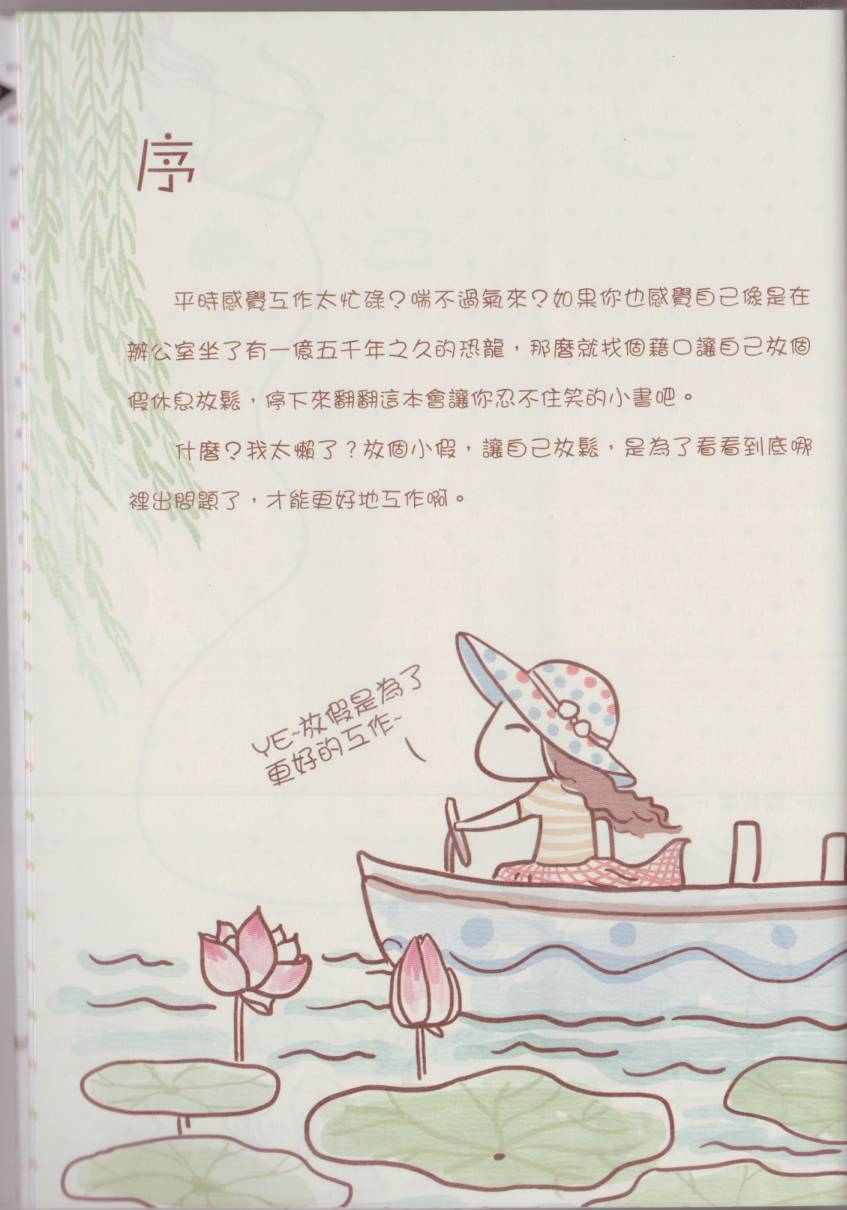 序
平時感覺工作太忙碌？喘不過氣來？如果你也感覺自己像是在
辦公室坐了有一億五千年之久的恐龍，那麼就找個藉口讓自己放個
假休息放鬆，停下來翻翻這本會讓你忍不住笑的小書吧。
什麼？我太懶了？放個小假，讓自己放鬆，是為了看看到底哪
裡出問題了，才能更好地工作啊。
YE~放假是為了
更好的工作~